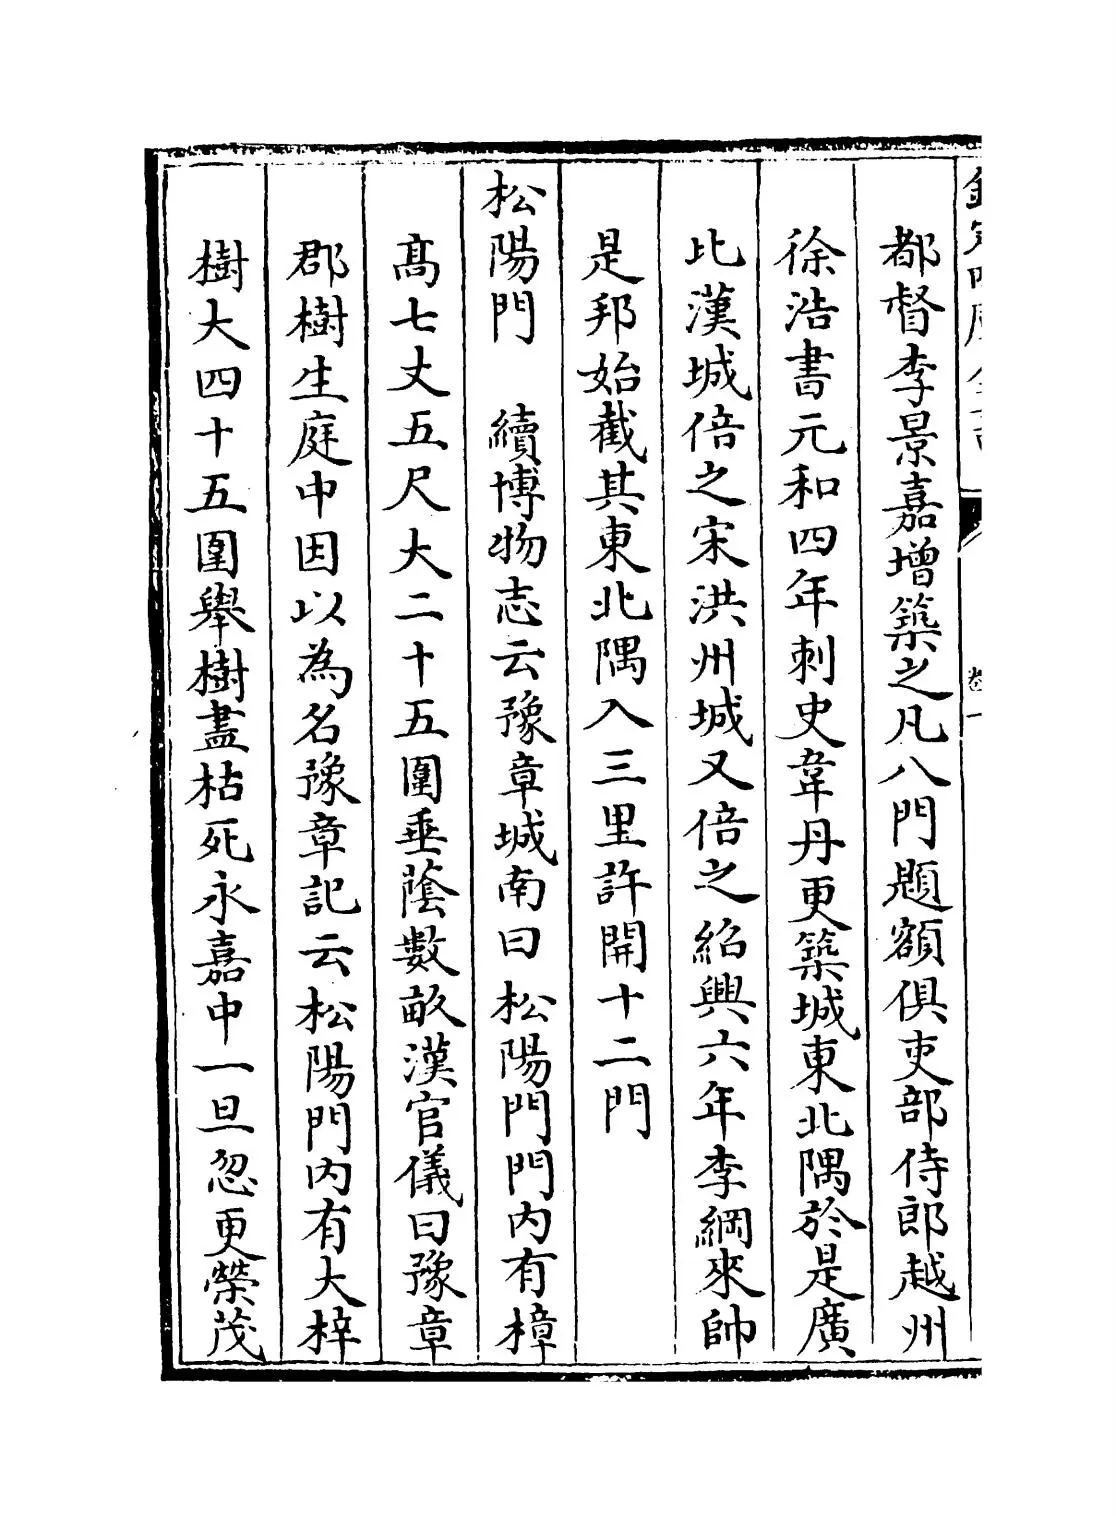 都督李景嘉增築之凡八門題額俱吏部侍郎越州
徐浩書元和四年刺史韋丹更築城東北隅於是廣
比漢城倍之宋洪州城又倍之紹興六年李綱來帥
是邦始截其東北隅入三里許開十二門
松陽門　續博物志云豫章城南曰松陽門門内有樟
髙七丈五尺大二十五圍垂蔭數畝漢官儀曰豫章
郡樹生庭中因以為名豫章記云松陽門内有大梓
樹大四十五圍舉樹盡枯死永嘉中一旦忽更榮茂